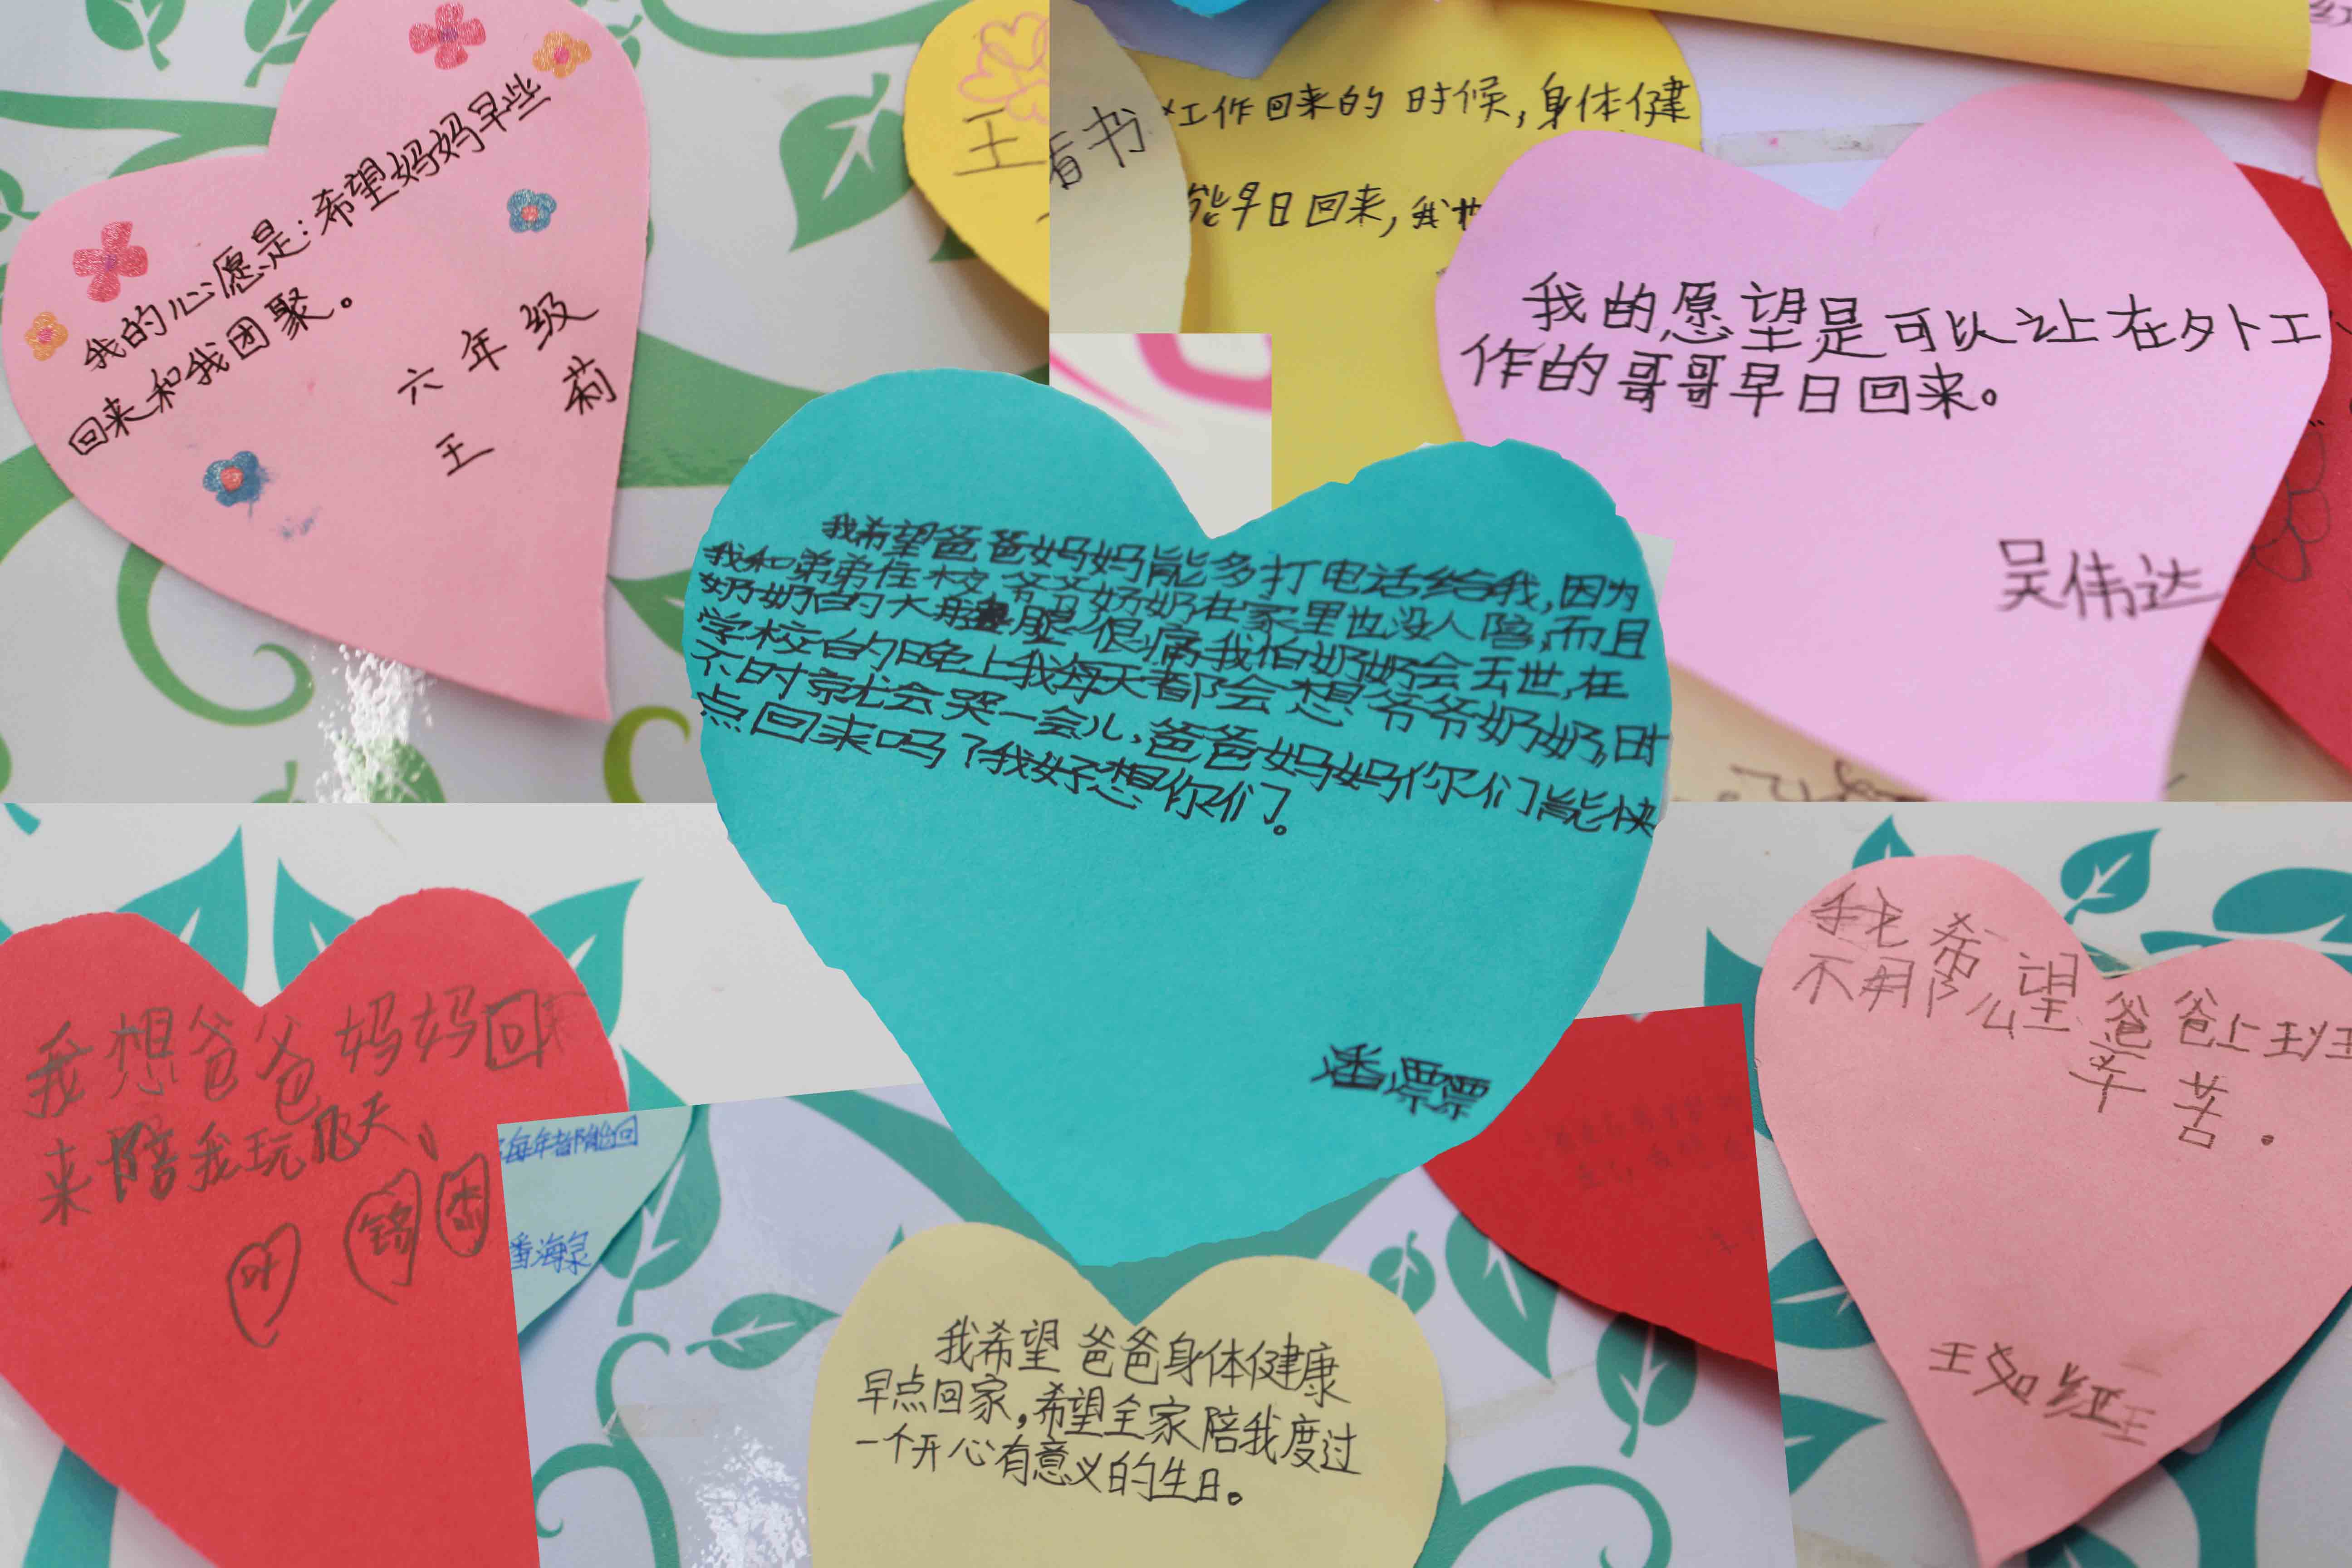 我的心愿是：希望妈妈早些
回来和我团聚。
六年级
王 莉
王
看书
工作回来的时候，身体健
能早日回来，我也
我的愿望是可以让在外工
作的哥哥早日回来。
吴伟达
我希望爸爸妈妈能多打电话给我，因为
我和弟弟在校，爷爷奶奶在家里也没人陪，而且
奶奶的大腿很痛我怕奶奶会去世，在
学校的晚上我每天都会想爷爷奶奶，时
不时就会哭一会儿，爸爸妈妈你们能快
点回来吗？我好想你们。
潘漂漂
我想爸爸妈妈回
来陪我玩几天
每年都能回
番海泉
我希望爸爸上班
不用那么辛苦。
王如红
我希望爸爸身体健康
早点回家，希望全家陪我度过
一个开心有意义的生日。